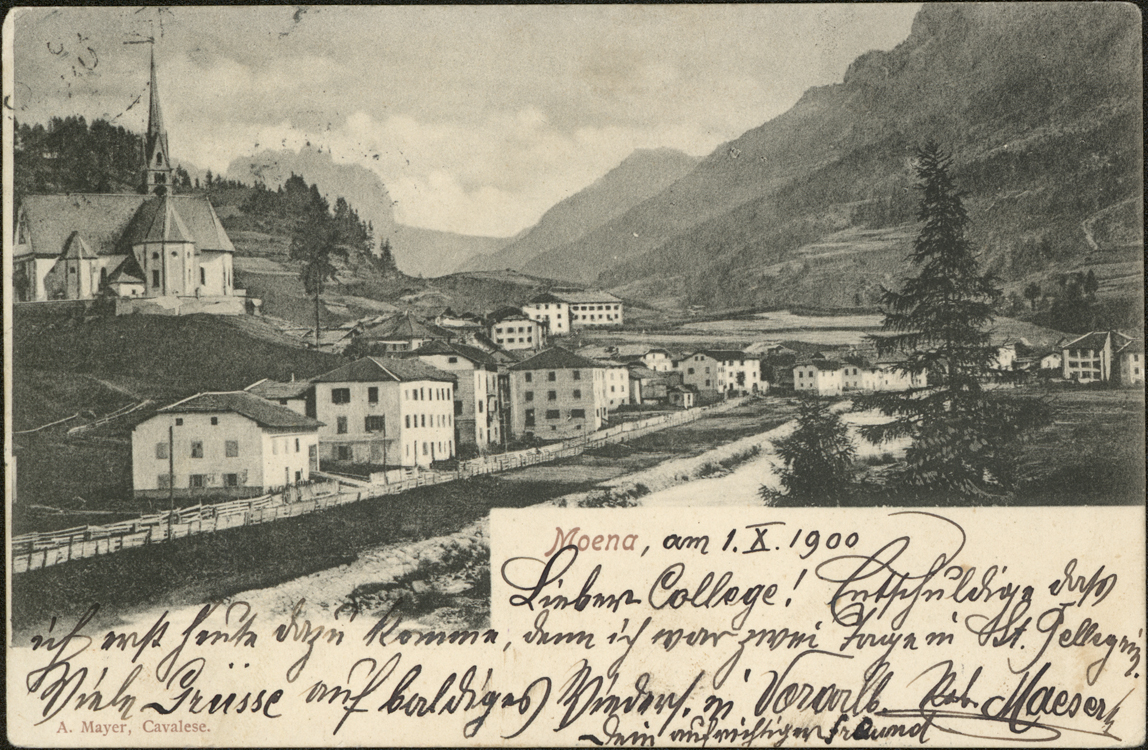 Moena, am 1. X. 1900
Lieber College! Entschuldige daß
ich erst heute dazu komme, denn ich war zwei Tage in St. Pellegrin.
Viele Grüsse auf baldiges Wieders. in Vorarlb. Maeser
Dein aufrichtiger Freund
A. Mayer, Cavalese.